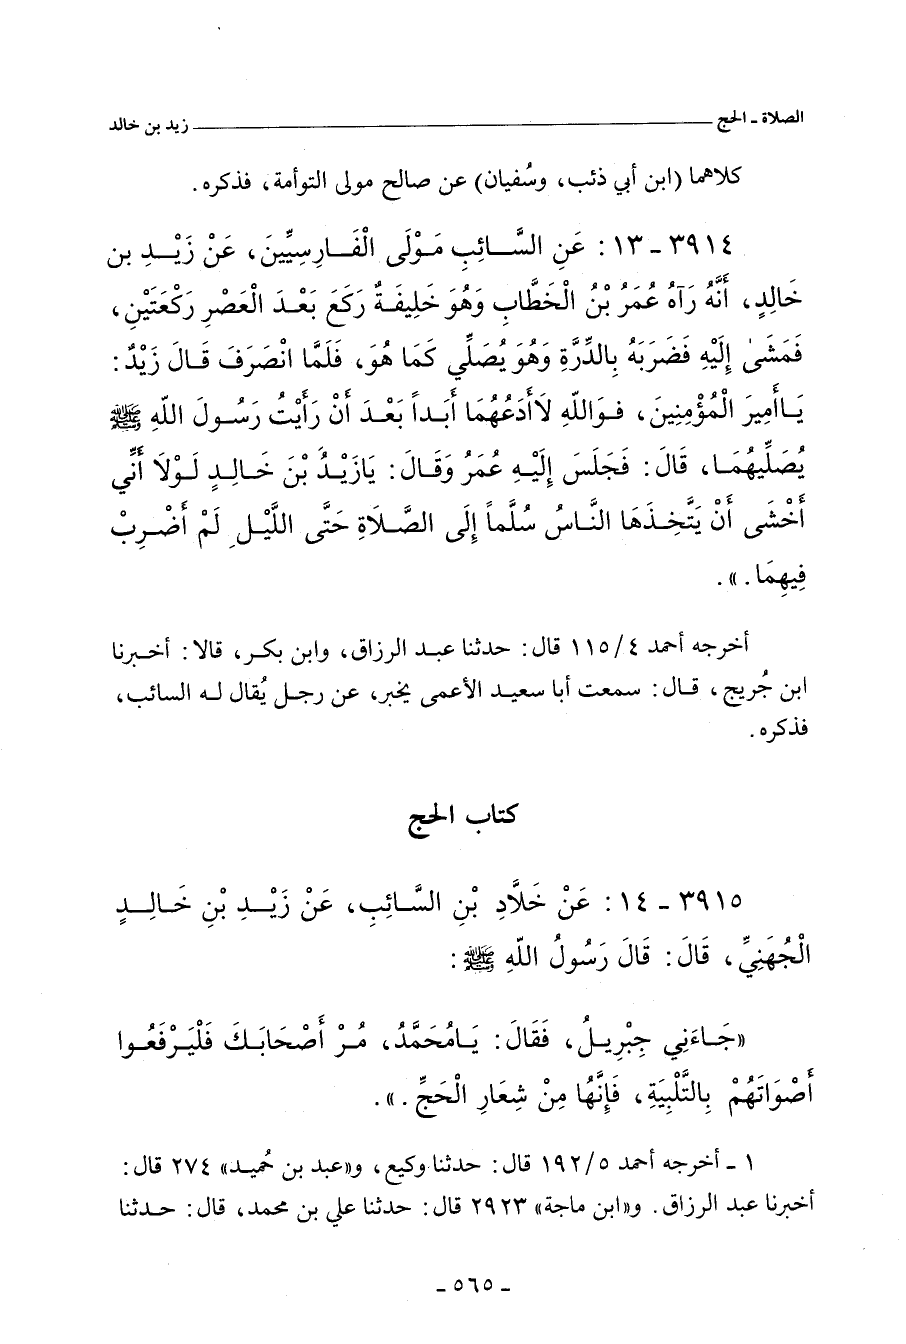 الصلاة - الحج زيد بن خالد
كلاهما (ابن أبي ذئب، وسُفيان) عن صالح مولى التوأمة، فذكره.
٣٩١٤ - ١٣: عَنِ السَّائِبِ مَوْلَى الْفَارِسِيِّينَ، عَنْ زَيْدِ بن
خَالِدٍ، أَنَّهُ رَآهُ عُمَرُ بْنُ الْخَطَّابِ وَهُوَ خَلِيفَةٌ رَكَعَ بَعْدَ الْعَصْرِ رَكْعَتَيْنِ،
فَمَشَىٰ إِلَيْهِ فَضَرَبَهُ بِالدِّرَّةِ وَهُوَ يُصَلِّي كَمَا هُوَ، فَلَمَّا انْصَرَفَ قَالَ زَيْدٌ:
يَاأَمِيرَ الْمُؤْمِنِينَ، فَوَاللهِ لاَأَدَعُهُمَا أَبَداً بَعْدَ أَنْ رَأَيْتُ رَسُولَ اللهِ ﷺ
يُصَلِّيهُمَا، قَالَ: فَجَلَسَ إِلَيْهِ عُمَرُ وَقَالَ: يَازَيْدُ بْنَ خَالِدٍ لَوْلاَ أَنِّي
أَخْشَى أَنْ يَتَّخِذَهَا النَّاسُ سُلَّماً إِلَى الصَّلاَةِ حَتَّى اللَّيْلِ لَمْ أَضْرِبْ
فِيهِمَا.».
أخرجه أحمد ٤/١١٥ قال: حدثنا عبد الرزاق، وابن بكر، قالا: أخبرنا
ابن جُريج، قال: سمعت أبا سعيد الأعمى يخبر، عن رجل يُقال له السائب،
فذكره.
كتاب الحج
٣٩١٥ - ١٤: عَنْ خَلاَّدِ بْنِ السَّائِبِ، عَنْ زَيْدِ بْنِ خَالِدٍ
الْجُهَنِيِّ، قَالَ: قَالَ رَسُولُ اللهِ ﷺ:
«جَاءَنِي جِبْرِيلُ، فَقَالَ: يَامُحَمَّدُ، مُرْ أَصْحَابَكَ فَلْيَرْفَعُوا
أَصْوَاتَهُمْ بِالتَّلْبِيَةِ، فَإِنَّهَا مِنْ شِعَارِ الْحَجِّ.».
١ - أخرجه أحمد ٥/١٩٢ قال: حدثنا وكيع، و«عبد بن حُميد» ٢٧٤ قال:
أخبرنا عبد الرزاق. و«ابن ماجة» ٢٩٢٣ قال: حدثنا علي بن محمد، قال: حدثنا
- ٥٦٥ -